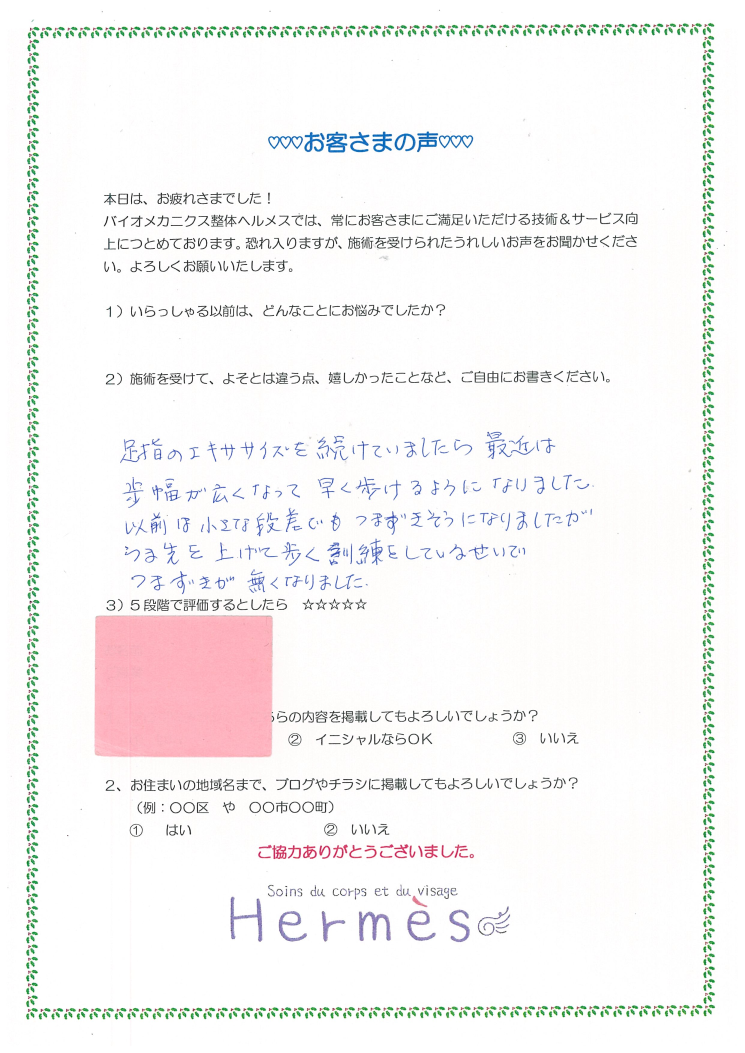 ♡♡♡お客さまの声♡♡♡
本日は、お疲れさまでした！
バイオメカニクス整体ヘルメスでは、常にお客さまにご満足いただける技術＆サービス向
上につとめております。恐れ入りますが、施術を受けられたうれしいお声をお聞かせくださ
い。よろしくお願いいたします。
１）いらっしゃる以前は、どんなことにお悩みでしたか？
２）施術を受けて、よそとは違う点、嬉しかったことなど、ご自由にお書きください。
足指のエキササイズを続けていましたら 最近は
歩幅が広くなって 早く歩けるようになりました.
以前は小さな段差でもつまずきそうになりましたが
つま先を上げて歩く訓練をしているせいで
つまずきが無くなりました.
３）５段階で評価するとしたら ☆☆☆☆☆
らの内容を掲載してもよろしいでしょうか？
② イニシャルならＯＫ ③ いいえ
２、お住まいの地域名まで、ブログやチラシに掲載してもよろしいでしょうか？
（例：〇〇区 や 〇〇市〇〇町）
① はい ② いいえ
ご協力ありがとうございました。
Soins du corps et du visage
Hermès